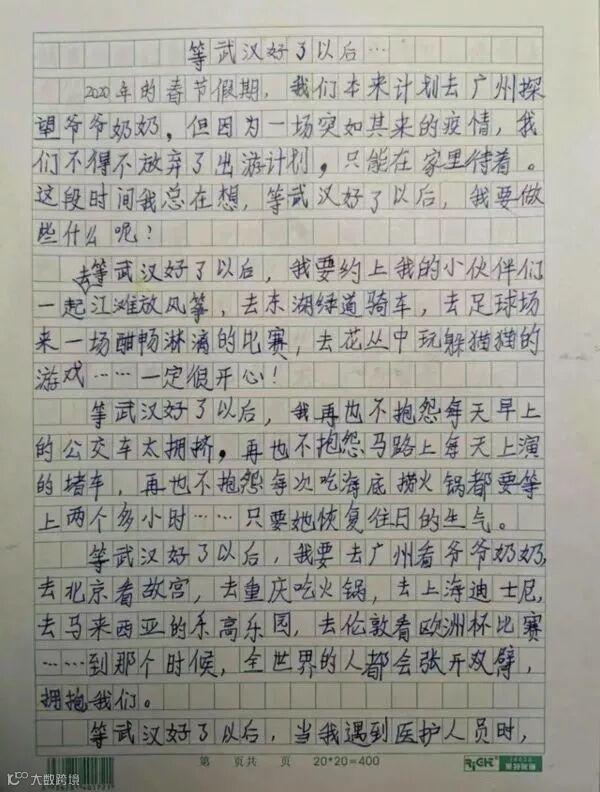 等武汉好了以后…
2020年的春节假期，我们本来计划去广州探
望爷爷奶奶，但因为一场突如其来的疫情，我
们不得不放弃了出游计划，只能在家里待着。
这段时间我总在想，等武汉好了以后，我要做
些什么呢？
等武汉好了以后，我要约上我的小伙伴们
一起去江滩放风筝，去东湖绿道骑车，去足球场
来一场酣畅淋漓的比赛，去花丛中玩躲猫猫的
游戏……一定很开心！
等武汉好了以后，我再也不抱怨每天早上
的公交车太拥挤，再也不抱怨马路上每天上演
的堵车，再也不抱怨每次吃海底捞火锅都要等
上两个多小时……只要她恢复往日的生气。
等武汉好了以后，我要去广州看爷爷奶奶，
去北京看故宫，去重庆吃火锅，去上海迪士尼，
去马来西亚的乐高乐园，去伦敦看欧洲杯比赛
……到那个时候，全世界的人都会张开双臂，
拥抱我们。
等武汉好了以后，当我遇到医护人员时，
第 页共 页 20*20=400
大数跨境